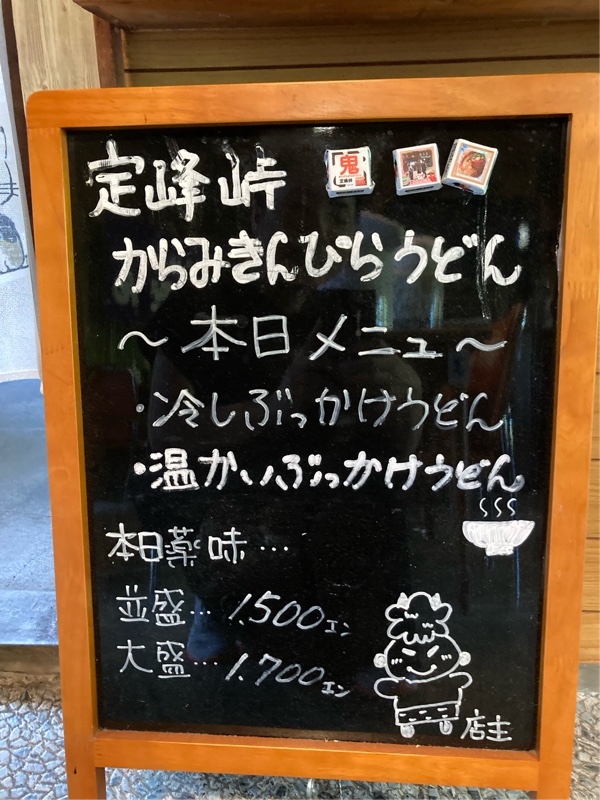 定峰峠
鬼
定峰峠
からみきんぴらうどん
〜本日メニュー〜
・冷しぶっかけうどん
・温かいぶっかけうどん
本日薬味…
並盛…1,500エン
大盛…1,700エン
店主